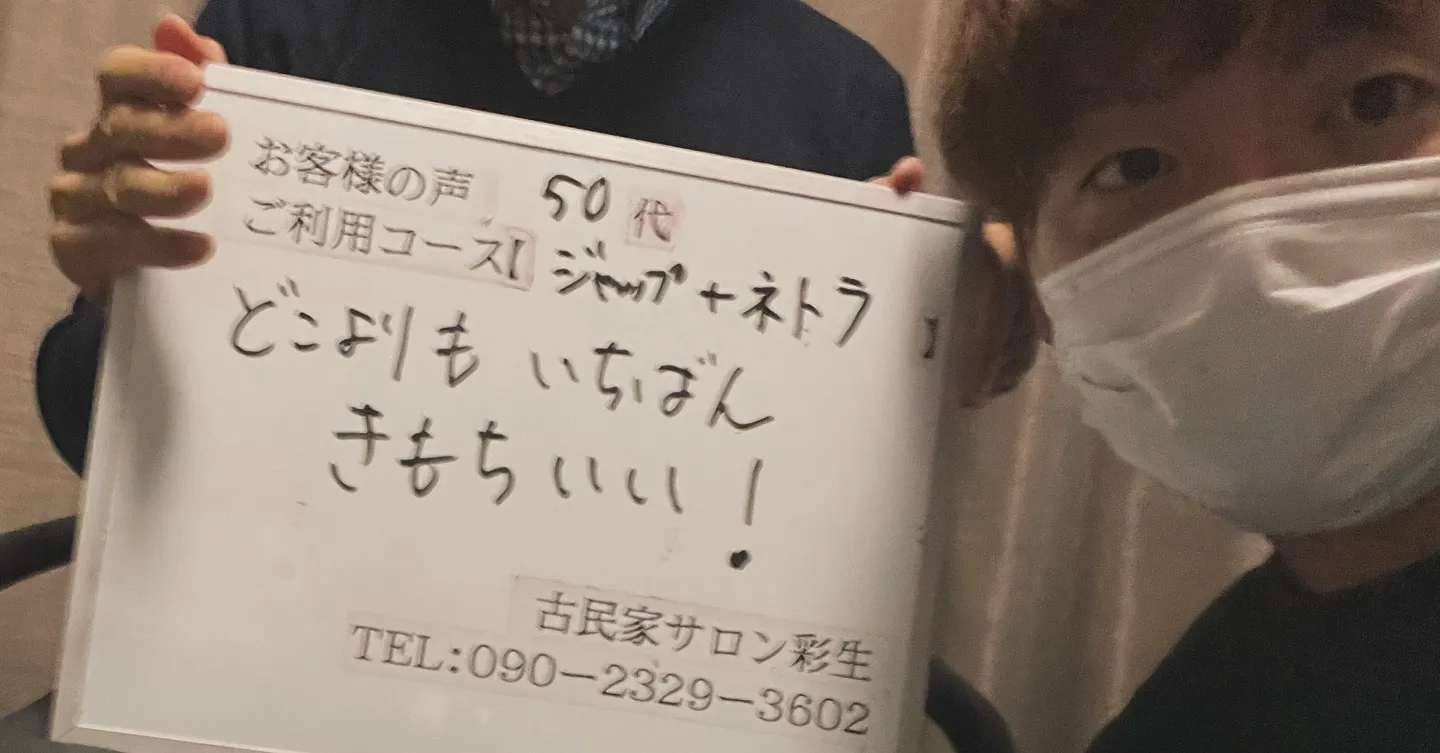 お客様の声 50代
ご利用コース【ジャップ+ネトラ】
どこよりも いちばん
きもちいい!
古民家サロン彩生
TEL:090-2329-3602